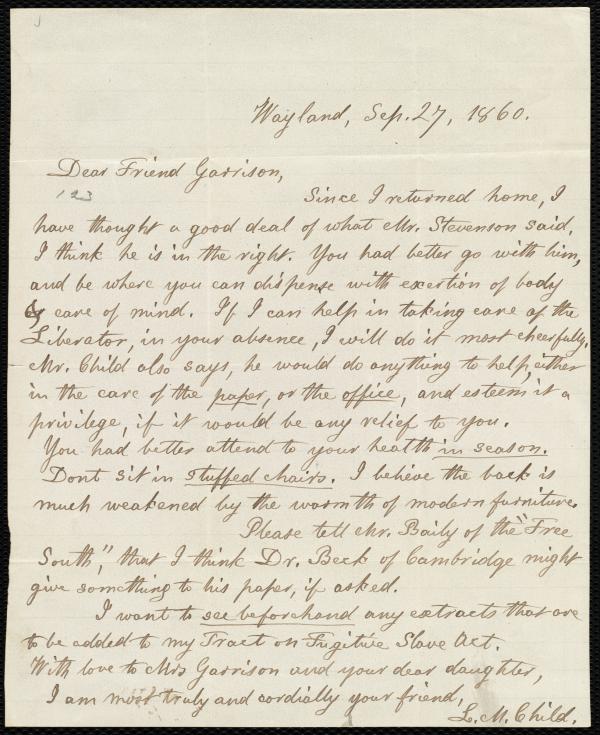 Wayland, Sep. 27, 1860.
Dear Friend Garrison,
123
Since I returned home, I
have thought a good deal of what Mr. Stevenson said,
I think he is in the right. You had better go with him,
and be where you can dispense with exertion of body
& care of mind. If I can help in taking care of the
Liberator, in your absence, I will do it most cheerfully.
Mr. Child also says, he would do anything to help, either
in the care of the paper, or the office, and esteem it a
privilege, if it would be any relief to you.
You had better attend to your health in season.
Dont sit in stuffed chairs. I believe the back is
much weakened by the warmth of modern furniture.
Please tell Mr. Baily of the "Free
South," that I think Dr. Beck of Cambridge might
give something to his paper, if asked.
I want to see beforehand any extracts that are
to be added to my Tract on Fugitive Slave Act.
With love to Mrs Garrison and your dear daughter,
I am most truly and cordially your friend,
L. M. Child.